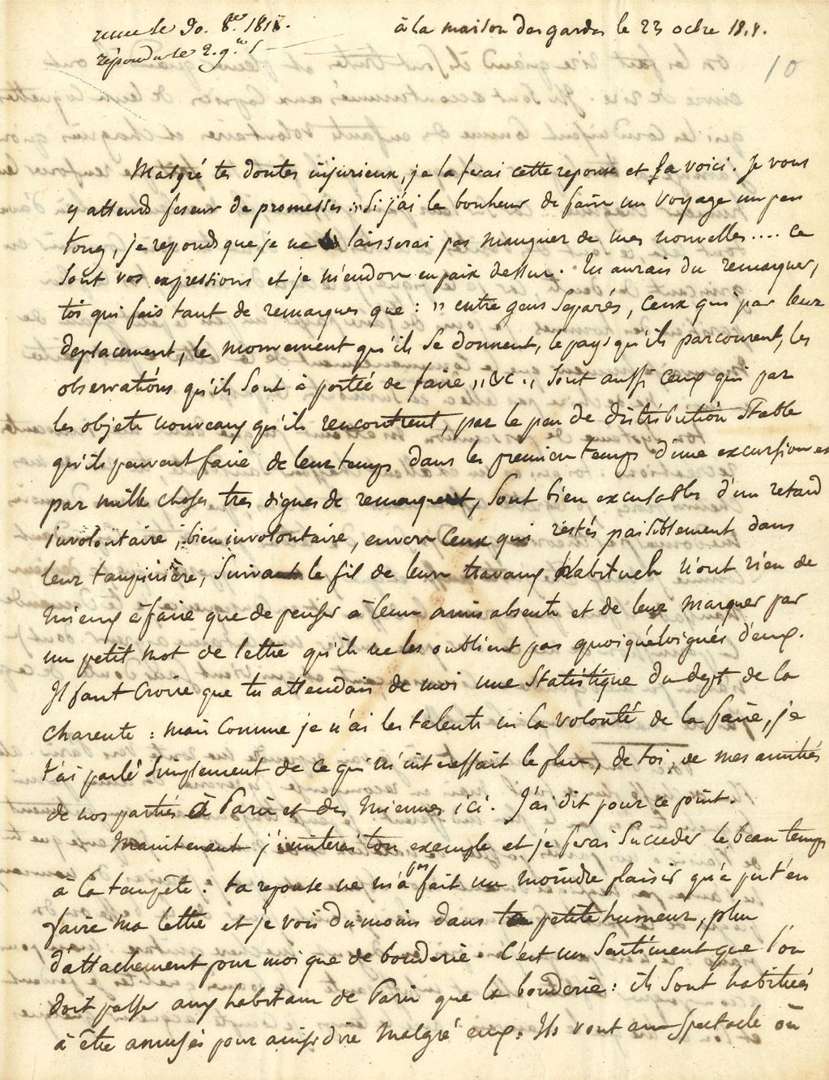 reçue le 30. 8.bre 1818.
répondu le 2. 9.bre
à la maison des gardes le 23 octbre 1818.
10
Malgré tes doutes injurieux, je la ferai cette reponse et la voici. Je vous
y attends feseur de promesses : "Si j'ai le bonheur de faire un voyage un peu
long, je reponds que je ne laisserai pas manquer de mes nouvelles.... Ce
sont vos expressions et je m'endors en paix dessus. Tu aurais du remarquer,
toi qui fais tant de remarques que : "entre gens séparés, ceux qui par leur
deplacement, le mouvement qu'ils se donnent, le pays qu'ils parcourent, les
observations qu'ils sont à portée de faire "&c." sont aussi ceux qui par
les objets nouveaux qu'ils rencontrent, par le peu de distribution stable
qu'ils peuvent faire de leur temps dans les premiers temps d'une excursion et
par mille choses tres dignes de remarques, sont bien excusables d'un retard
involontaire, bien involontaire, envers ceux qui restés paisiblement dans
leur taupinière, suivant le fil de leurs travaux habituels n'ont rien de
mieux à faire que de penser à leurs amis absents et de leur marquer par
un petit mot de lettre qu'ils ne les oublient pas quoiqu'éloignés d'eux.
Il faut croire que tu attendais de moi une statistique du dept de la
Charente : mais comme je n'ai les talents ni la volonté de la faire, je
t'ai parlé simplement de ce qui m'interessait le plus, de toi, de mes amitiés
de nos parties à Paris et des miennes ici. J'ai dit pour ce point.
Maintenant j'imiterai ton exemple et je ferai succeder le beau temps
à la tempête : ta reponse ne m'a pas fait un moindre plaisir qu'à pu t'en
faire ma lettre et je vois du moins dans ta petite humeur, plus
d'attachement pour moi que de bouderie. C'est un sentiment que l'on
doit passer aux habitans de Paris que la bouderie : ils sont habitués
à être amusés pour ainsi dire malgré eux. Ils vont au spectacle où